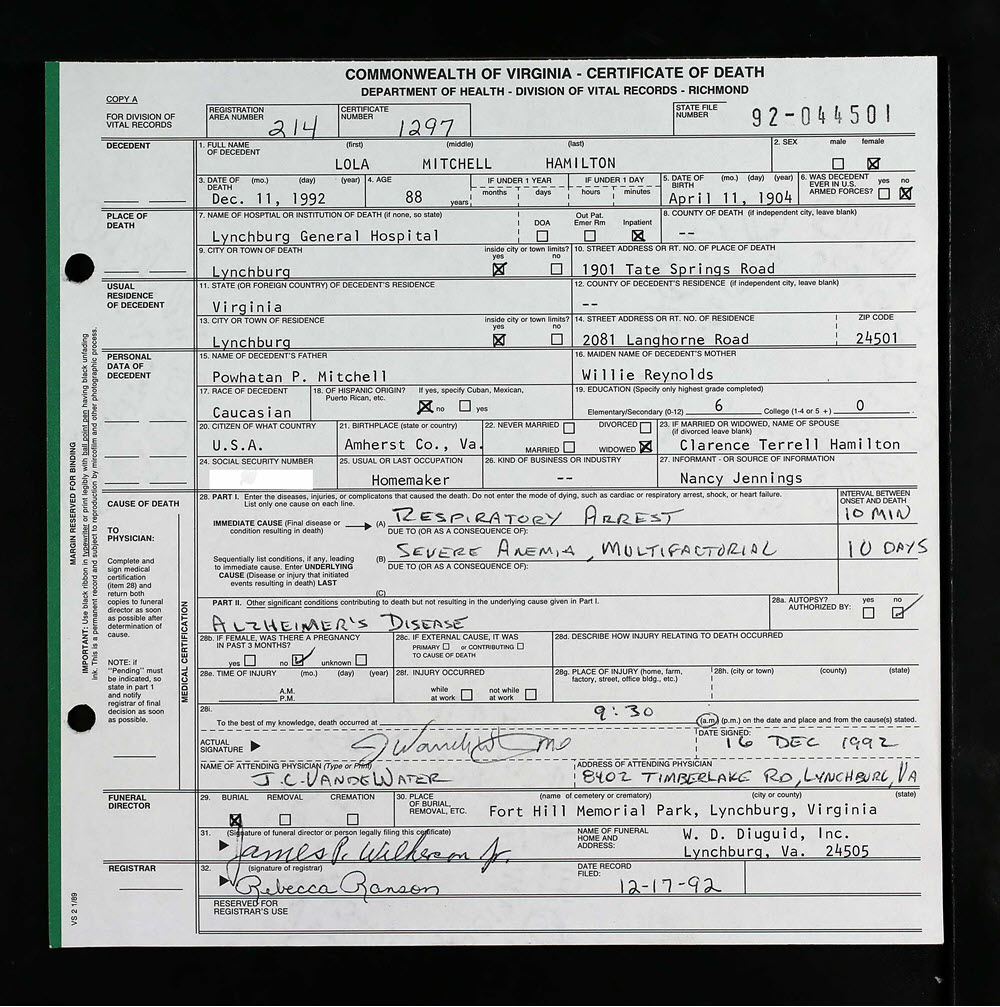 COMMONWEALTH OF VIRGINIA - CERTIFICATE OF DEATH
DEPARTMENT OF HEALTH - DIVISION OF VITAL RECORDS - RICHMOND
COPY A
FOR DIVISION OF VITAL RECORDS
REGISTRATION AREA NUMBER 214
CERTIFICATE NUMBER 1297
STATE FILE NUMBER 92-044501
DECEDENT
1. FULL NAME OF DECEDENT (first) (middle) (last)
LOLA MITCHELL HAMILTON
2. SEX male female
3. DATE OF DEATH (mo.) (day) (year)
Dec. 11, 1992
4. AGE 88 years
IF UNDER 1 YEAR months days
IF UNDER 1 DAY hours minutes
5. DATE OF BIRTH (mo.) (day) (year)
April 11, 1904
6. WAS DECEDENT EVER IN U.S. ARMED FORCES? yes no
PLACE OF DEATH
7. NAME OF HOSPTIAL OR INSTITUTION OF DEATH (if none, so state)
Lynchburg General Hospital
DOA Out Pat. Emer Rm Inpatient
8. COUNTY OF DEATH (if independent city, leave blank)
--
9. CITY OR TOWN OF DEATH
Lynchburg
inside city or town limits? yes no
10. STREET ADDRESS OR RT. NO. OF PLACE OF DEATH
1901 Tate Springs Road
USUAL RESIDENCE OF DECEDENT
11. STATE (OR FOREIGN COUNTRY) OF DECEDENT'S RESIDENCE
Virginia
12. COUNTY OF DECEDENT'S RESIDENCE (if independent city, leave blank)
--
13. CITY OR TOWN OF RESIDENCE
Lynchburg
inside city or town limits? yes no
14. STREET ADDRESS OR RT. NO. OF RESIDENCE
2081 Langhorne Road
ZIP CODE
24501
PERSONAL DATA OF DECEDENT
15. NAME OF DECEDENT'S FATHER
Powhatan P. Mitchell
16. MAIDEN NAME OF DECEDENT'S MOTHER
Willie Reynolds
17. RACE OF DECEDENT
Caucasian
18. OF HISPANIC ORIGIN? If yes, specify Cuban, Mexican, Puerto Rican, etc.
no yes
19. EDUCATION (Specify only highest grade completed)
Elementary/Secondary (0-12) 6 College (1-4 or 5 +) 0
20. CITIZEN OF WHAT COUNTRY
U.S.A.
21. BIRTHPLACE (state or country)
Amherst Co., Va.
22. NEVER MARRIED DIVORCED
MARRIED WIDOWED
23. IF MARRIED OR WIDOWED, NAME OF SPOUSE (if divorced leave blank)
Clarence Terrell Hamilton
24. SOCIAL SECURITY NUMBER
25. USUAL OR LAST OCCUPATION
Homemaker
26. KIND OF BUSINESS OR INDUSTRY
--
27. INFORMANT - OR SOURCE OF INFORMATION
Nancy Jennings
CAUSE OF DEATH
TO PHYSICIAN:
Complete and sign medical certification (item 28) and return both copies to funeral director as soon as possible after determination of cause.
NOTE: if "Pending" must be indicated, so state in part 1 and notify registrar of final decision as soon as possible.
MEDICAL CERTIFICATION
28. PART I. Enter the diseases, injuries, or complicatons that caused the death. Do not enter the mode of dying, such as cardiac or respiratory arrest, shock, or heart failure.
List only one cause on each line.
INTERVAL BETWEEN ONSET AND DEATH
IMMEDIATE CAUSE (Final disease or condition resulting in death)
(A) RESPIRATORY ARREST
10 MIN
DUE TO (OR AS A CONSEQUENCE OF):
Sequentially list conditions, if any, leading to immediate cause. Enter UNDERLYING CAUSE (Disease or injury that initiated events resulting in death) LAST
(B) SEVERE ANEMIA, MULTIFACTORIAL
10 DAYS
DUE TO (OR AS A CONSEQUENCE OF):
(C)
PART II. Other significant conditions contributing to death but not resulting in the underlying cause given in Part I.
ALZHEIMER'S DISEASE
28a. AUTOPSY? AUTHORIZED BY: yes no
28b. IF FEMALE, WAS THERE A PREGNANCY IN PAST 3 MONTHS?
yes no unknown
28c. IF EXTERNAL CAUSE, IT WAS
PRIMARY or CONTRIBUTING
TO CAUSE OF DEATH
28d. DESCRIBE HOW INJURY RELATING TO DEATH OCCURRED
28e. TIME OF INJURY (mo.) (day) (year)
A.M.
P.M.
28f. INJURY OCCURRED
while at work not while at work
28g. PLACE OF INJURY (home, farm, factory, street, office bldg., etc.)
28h. (city or town) (county) (state)
28i.
To the best of my knowledge, death occurred at 9:30 (a.m.) (p.m.) on the date and place and from the cause(s) stated.
ACTUAL SIGNATURE
DATE SIGNED:
16 DEC 1992
NAME OF ATTENDING PHYSICIAN (Type or Print)
J.C. VANDEWATER
ADDRESS OF ATTENDING PHYSICIAN
8402 TIMBERLAKE RD, LYNCHBURG, VA
FUNERAL DIRECTOR
29. BURIAL REMOVAL CREMATION
30. PLACE OF BURIAL, REMOVAL, ETC.
(name of cemetery or crematory) (city or county) (state)
Fort Hill Memorial Park, Lynchburg, Virginia
31. (Signature of funeral director or person legally filing this certificate)
James P. Wilkerson Jr.
NAME OF FUNERAL HOME AND ADDRESS:
W. D. Diuguid, Inc.
Lynchburg, Va. 24505
REGISTRAR
32. (signature of registrar)
Rebecca Ranson
DATE RECORD FILED:
12-17-92
RESERVED FOR REGISTRAR'S USE
MARGIN RESERVED FOR BINDING
IMPORTANT: Use black ribbon in typewriter or print legibly with ball point pen having black unfading ink. This is a permanent record and subject to reproduction by mircofilm and other photographic process.
VS 2 1/89